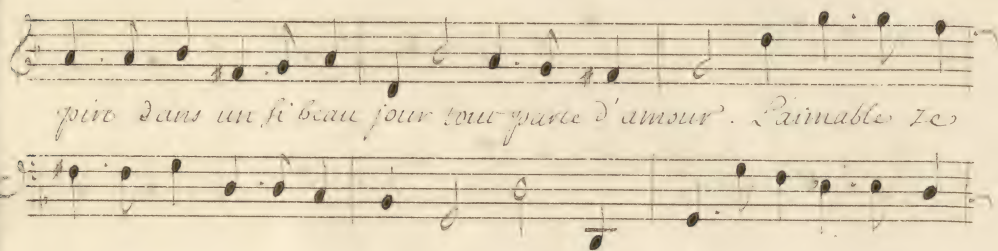 pire dans un si beau jour tout parle d'amour. L'aimable Ze